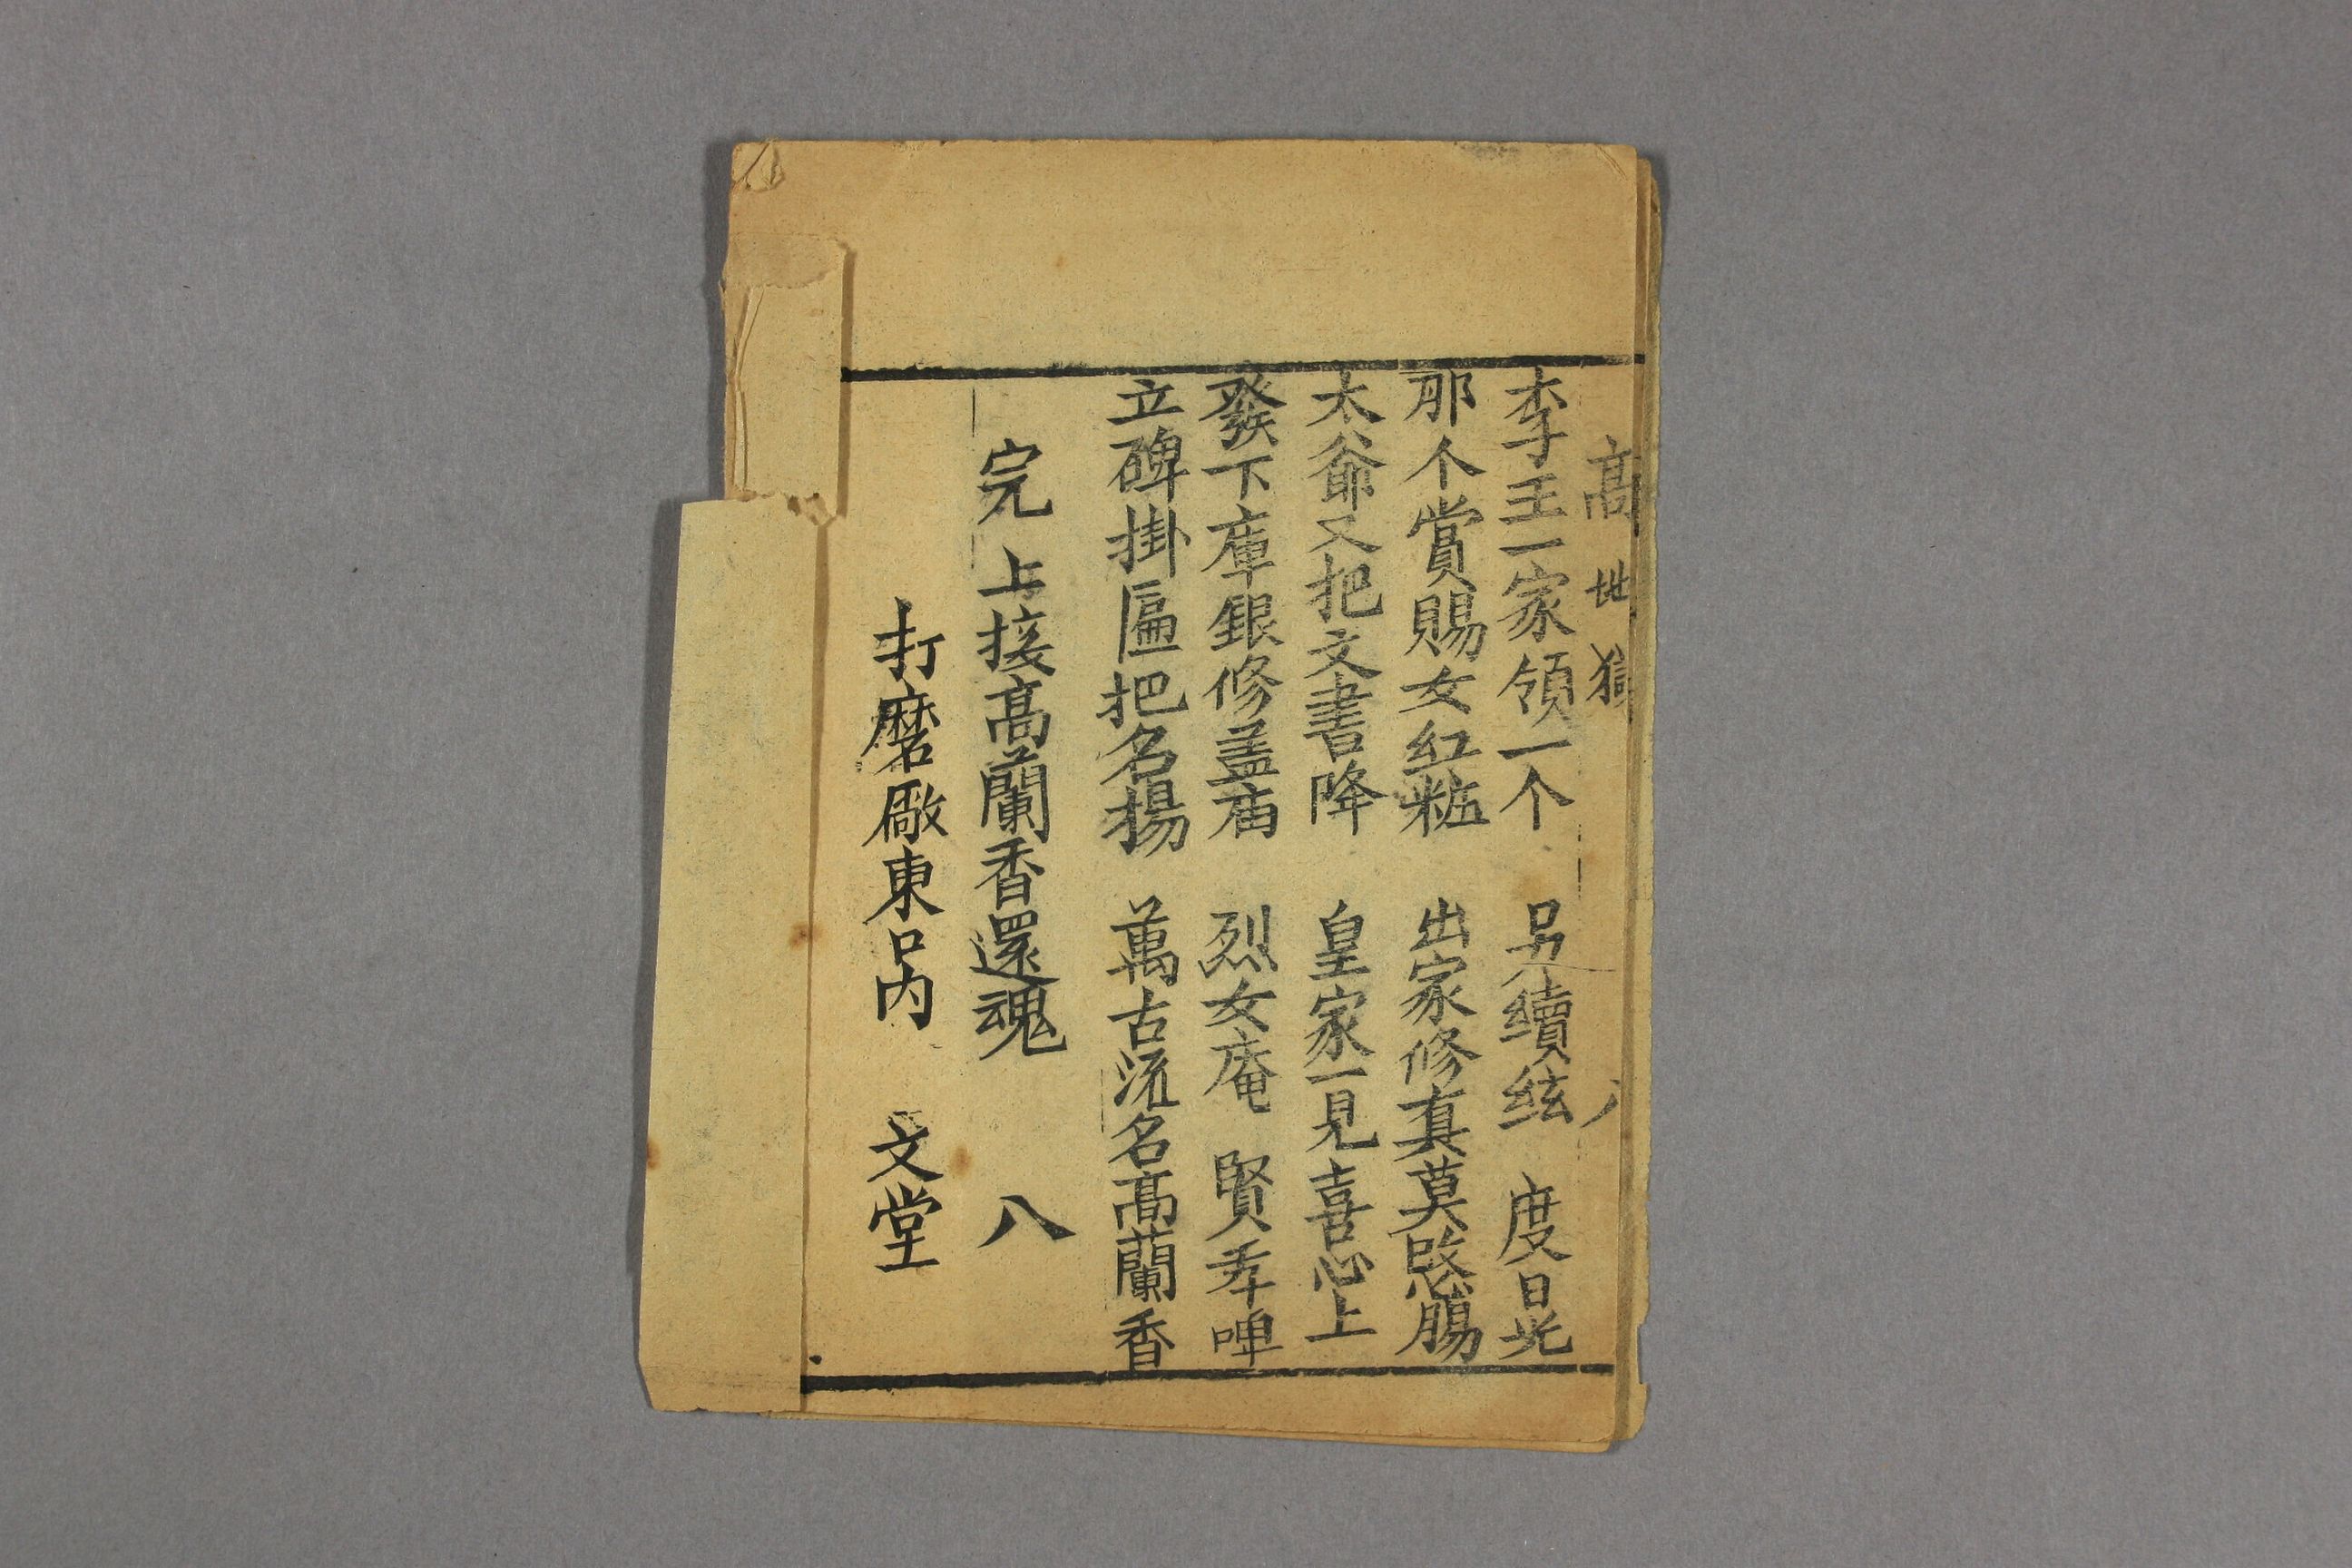 高 地 獄 八
李王一家領一个 另續絃 度晃
那个賞賜女紅粧 出家修真莫愍賜
太爺又把文書降 皇家一見喜心上
發下庫銀修盖庙 烈女庵 賢孝啤
立碑掛匾把名揚 萬古流名髙蘭香
完 上接髙蘭香還魂 八
打磨廠東口内 文堂